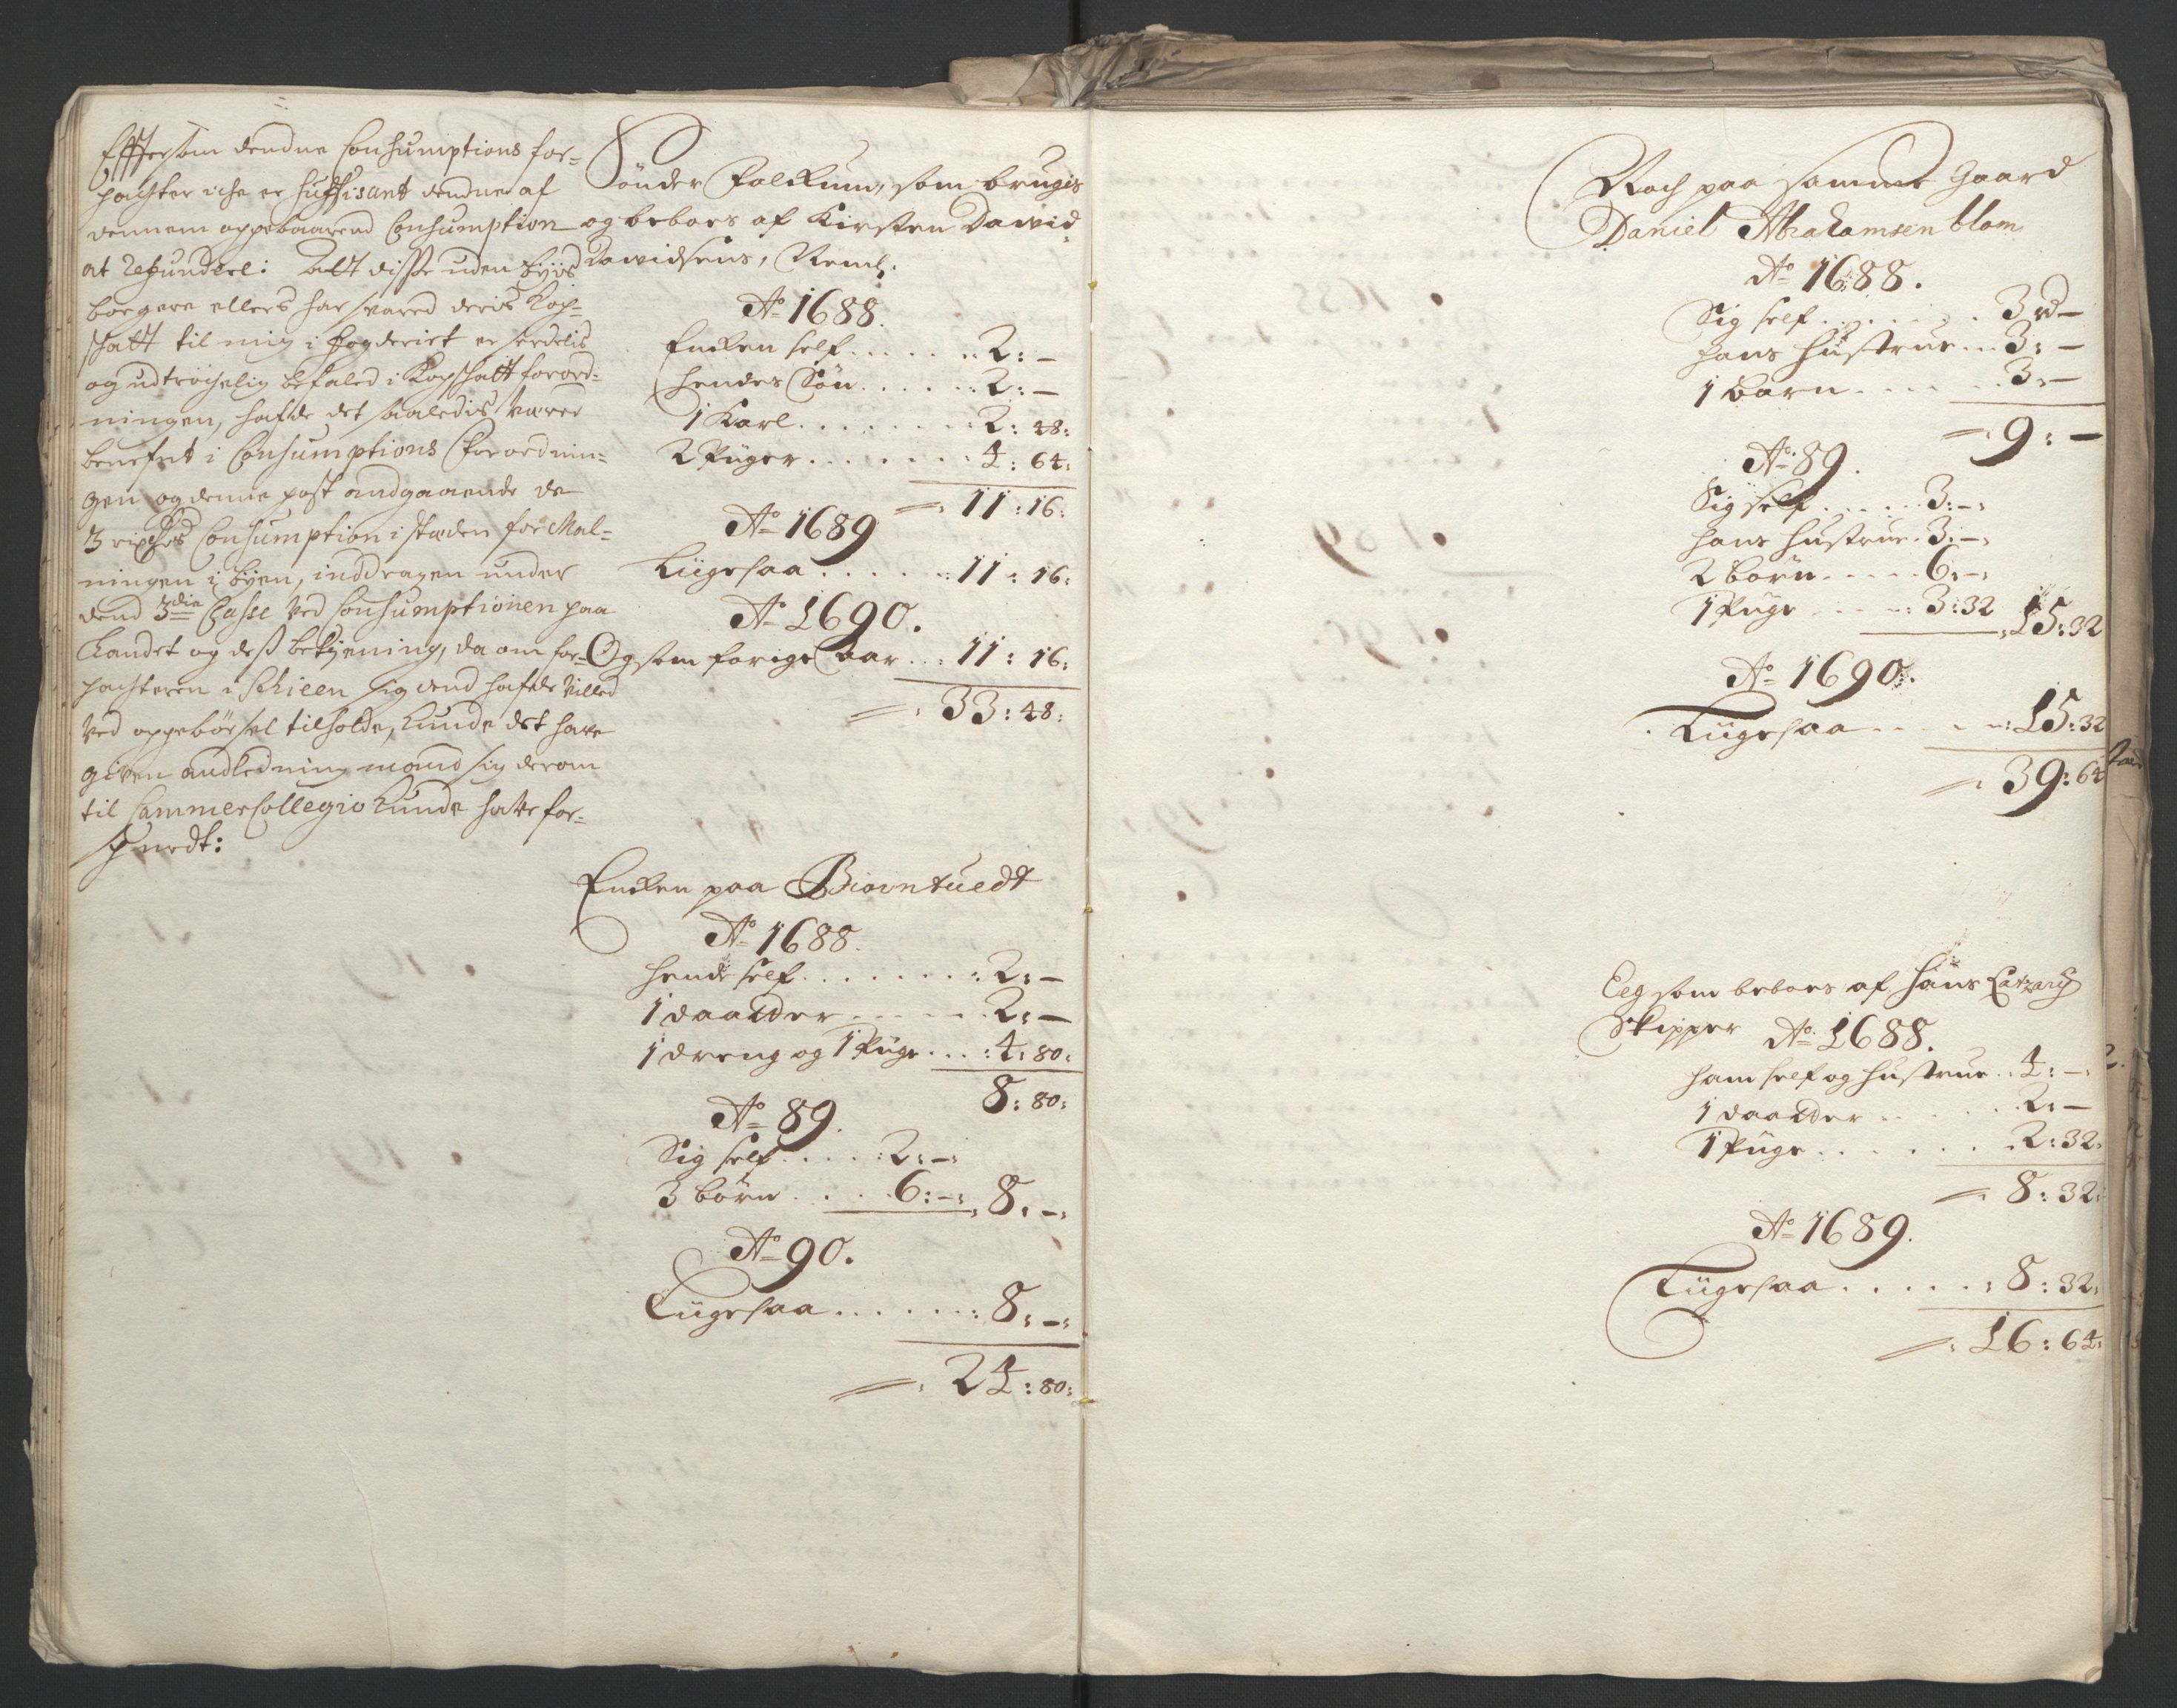 Effter som dendne Consumptions for=
pachter iche er suffisant dendne af
dennem oppebaarend Consumption
at Refundere: Alt disse uden byis
borgere ellers har svared deris Kop=
schatt til mig i fogderiet er serdelis
og udtrøchelig befaled i Kopschatt forord=
ningen, hafde det saaledis været
benefnt i Consumptions Forordnin=
gen og denne post andgaaende de
3 rixdrs Consumption i stæden for Mal=
ningen i byen, inddragen under
dend 3die Classe ved Consumptionen paa
Landet og dess betjening, da om for=
pachteren i Schieen sig dend hafde villed
ved oppebørsel tilholde, kunde det have
given andledning mand sig derom
til Cammer Collegio kunde have for=
spurdt:
Sønder Falckum, som brugis
og beboes af Kirsten David
Davidsens, Neml.
Ao 1688.
Encken self . . . . . . 2: –
hendes Søn . . . . . 2: –
1 Karl . . . . . . . . 2: 48:
2 Piiger . . . . . . . 4: 64:
11: 16:
Ao 1689
Liigesaa . . . . . 11: 16:
Ao 1690.
Og som forige aar . . 11: 16:
33: 48:
Encken paa Biørntuedt
Ao 1688.
hende self . . . . . . . 2: –
1 daatter . . . . . 2: –
1 dreng og 1 Piige . . . 4: 80:
8: 80:
Ao 89.
Sig self . . . . . 2: –:
3 børn . . . . 6: –: 8: –:
Ao 90.
Liigesaa . . . . . . . 8: –:
24: 80:
Noch paa samme Gaard
Daniel Abrahamsen blom
Ao 1688.
Sig self . . . . . . . 3 rd –
hans hustrue . . 3: –
1 barn . . . . . . 3: –
9: –
Ao 89.
Sig self . . . . . 3: –:
hans hustrue . 3: –:
2 børn . . . . . 6: –:
1 Piige . . . . . 3: 32 15: 32
Ao 1690.
Liigesaa . . . . . 15: 32
39: 64
Eeg som beboes af Hans
Skipper Ao 1688.
ham self og hustrue . . 4: –:
1 daatter . . . . . . 2: –
1 Piige . . . . . . . 2: 32:
8: 32:
Ao 1689.
Liigesaa . . . . . . 8: 32:
16: 64: